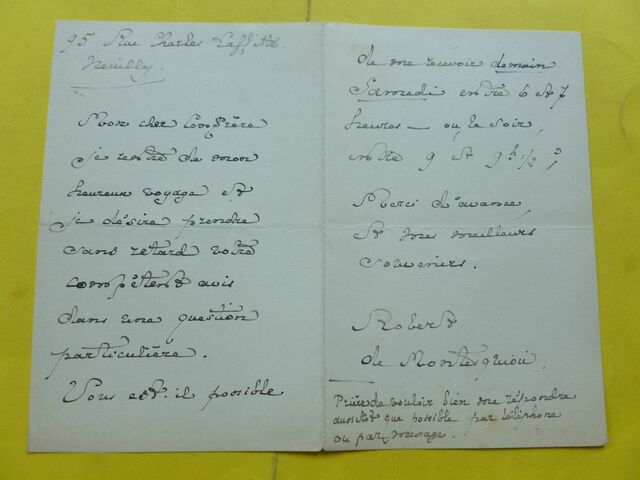 95 Rue Charles Laffitte
Neuilly.
Mon cher Confrère
je rentre de mon
heureux voyage et
je désire prendre
sans retard votre
compétent avis
dans une question
particulière.
Vous est-il possible
de me recevoir demain
Samedi entre 6 et 7
heures — ou le soir,
entre 9 et 9h 1/2 ?
Merci d'avance,
et mes meilleurs
souvenirs.
Robert
de Montesquiou.
Prière de vouloir bien me répondre
aussitôt que possible par téléphone
ou par message.